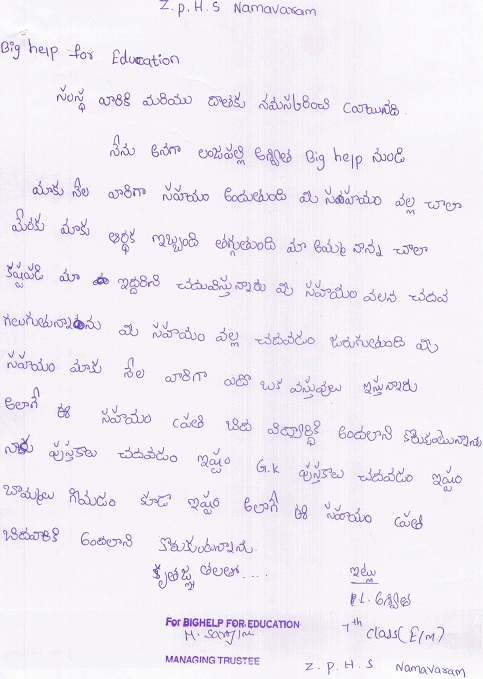 Z.P.H.S Namavaram
Big help for Education
సంస్థ వారికి మరియు దాతకు నమస్కరించి వ్రాయునది.
నేను అనగా లంజపల్లి అశ్విత Big help నుండి
మాకు నెల వారిగా సహాయం అందుతుంది మీ సహాయం వల్ల చాలా
మేరకు మాకు ఆర్థిక ఇబ్బంది తగ్గుతుంది మా అమ్మ నాన్న చాలా
కష్టపడి మా ఇద్దరిని చదువిస్తున్నారు మీ సహాయం వలన చదవ
గలుగుతున్నాను మీ సహాయం వల్ల చదవడం జరుగుతుంది మీ
సహాయం మాకు నెల వారిగా ఏదో ఒక వస్తువులు ఇస్తున్నారు
అలాగే ఈ సహాయం ప్రతి బిద విద్యార్థికి అందలాని కోరుకుంటున్నాను
నాకు పుస్తకాలు చదవడం ఇష్టం G.K పుస్తకాలు చదవడం ఇష్టం
బొమ్మలు గీయడం కూడా ఇష్టం అలాగే ఈ సహాయం ప్రతి
బిదవారికి అందలాని కోరుకుంటున్నాను.
కృతజ్ఞతలతో....
ఇట్లు
L. అశ్విత
7th class (E/M)
Z.P.H.S Namavaram
For BIGHELP FOR EDUCATION
MANAGING TRUSTEE